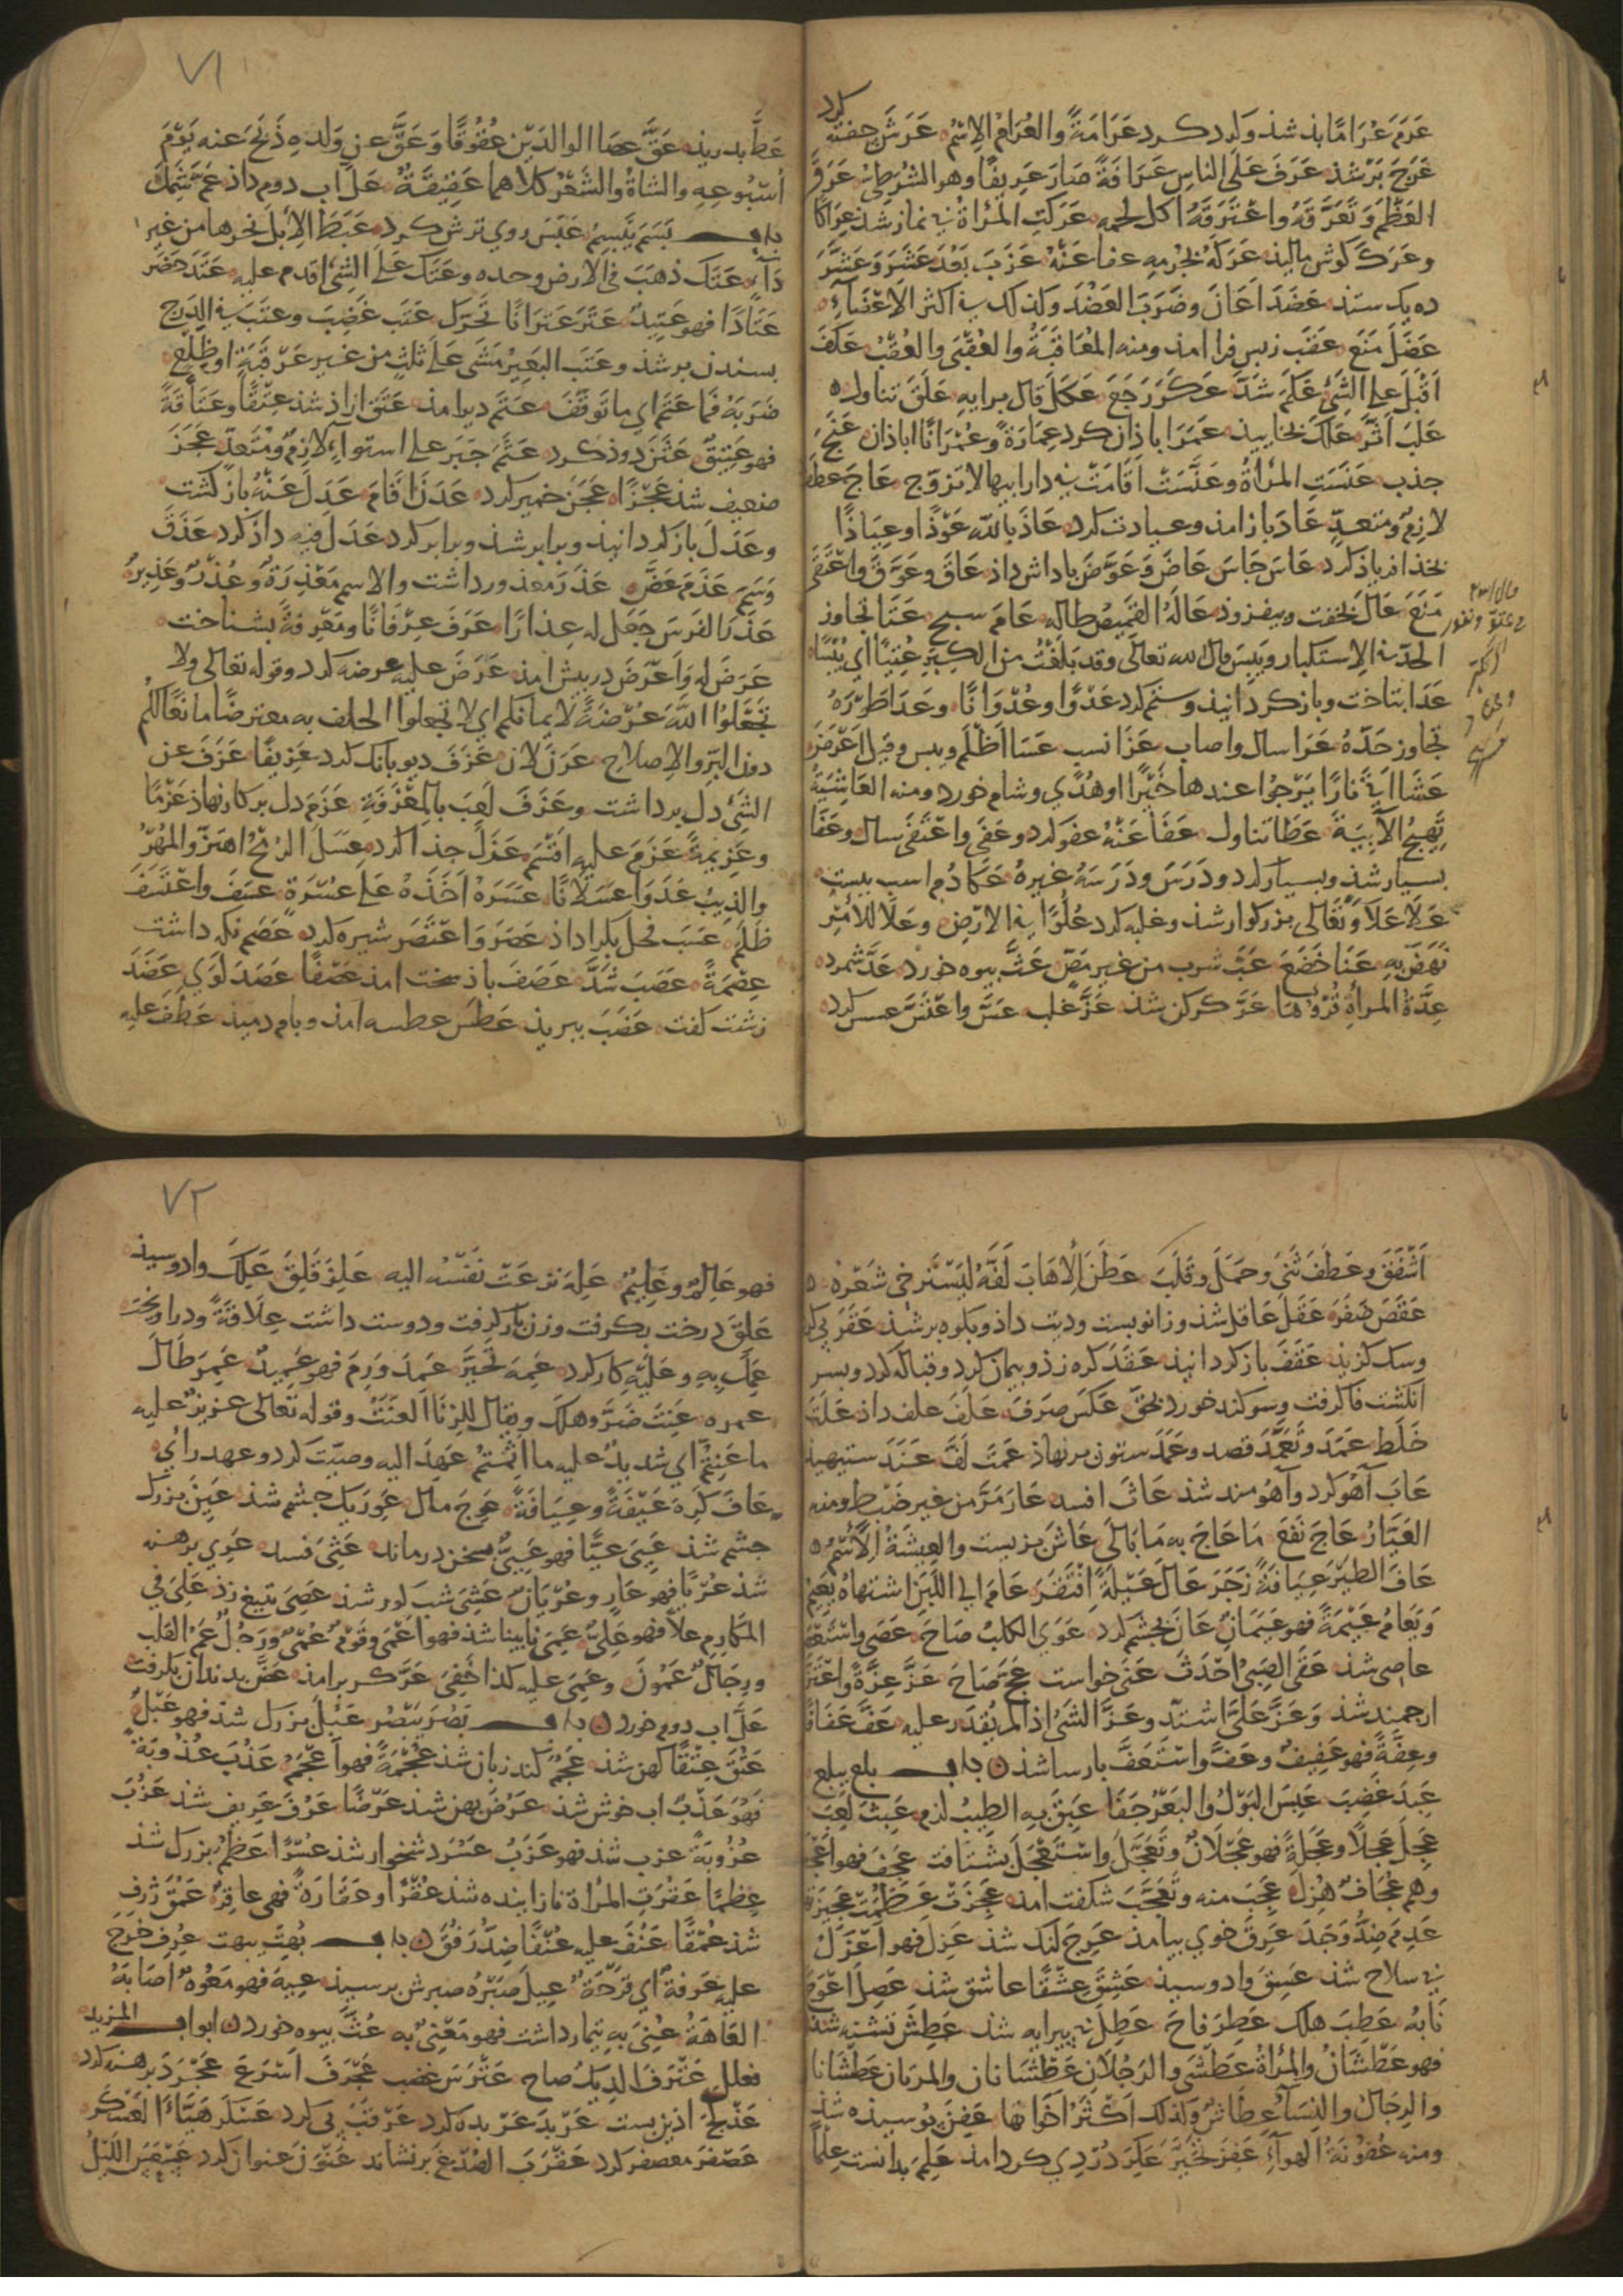 عَرَمَ عُرَامًا بذ شذ ولرد كرد عَرَامَةً والعُرَامُ الاِسْمُ عَرَشَ جفته كرد
عَرَجَ بَرْ شذ عَرَفَ عَلَى الناسِ عَرَافَةً صَارَ عَرِيفًا وهو الشُرْطِيُّ عَرَقَ
العَظْمَ وَتَعَرَّقَهُ وَاعْتَرَقَهُ اكل لحمه عَرَكَتِ المَرْأةُ بى نماز شذ عِرَاكًا
وعَرَكَ كوش ماليذ عَرَكَهُ بجُرْمِهِ عفا عَنْهُ عَزَبَ بَعُدَ عَشَرَ وَعَشَّرَ
ده يك ستذ عَضَدَ اَعَانَ وضَرَبَ العَضُدَ وكذلك فى اكثر الاَعْضَاءِ
عَضَلَ مَنَعَ عَقَبَ زپس فرا امذ ومنه المُعَاقَبَةُ والعُقْبَى والعُقْبُ عَكَفَ
اَقْبَلَ على الشَّئِ عَكَمَ شَدَّ عَكَرَ رَجَعَ عَكَلَ قال برايهِ عَلَقَ تناول
عَلَبَ اَثَّرَ عَلَكَ بخاييذ عَمَرَ اباذان كرد عِمَارَةً وعُمْرَانًا اباذان عَنَجَ
جذب عَنَسَتِ المَرْأةُ وعَنَّسَتْ اقَامَتْ فى دار ابيها لا تزوّج عَاجَ عطف
لازمٌ ومتعدٍّ عَادَ باز امذ وعيادت كرد عَاذَ بالله عَوْذًا وعِيَاذًا
بخذا فرياذ كرد عَاسَ جَاسَ عَاضَ وَعَوَّضَ پاداش داذ عَاقَ وعَوَّقَ وَاعْتَقَى
مَنَعَ عَالَ بخفت وبيفزوذ عَالَهُ القَمِيصُ طاله عَامَ سبح عَتَا تجاوز
الحدّ فى الاِستكبار ويَبِسَ قال الله تعالى وقد بَلَغْتُ من الكِبَرِ عِتِيًّا اى يُبْسًا
عَدَا بتاخت وبازكردانيذ وستم كرد عَدْوًا وعُدْوَانًا وعَدَا طَوْرَهُ
تجاوز حَدَّهُ عَرَا سال واصاب عَزَا نسب عَسَا اَظْلَمَ ويبس وقيل اعْرَضَ
عَشَا اَتَى نَارًا يَرْجُوا عندها خَيْرًا او هُدًى وشام خورد ومنه العَاشِيَةُ
تَهِيجُ الآبِيَةَ عَطَا تناول عَفَا عَنْهُ عفو كرد وعَفَى وَاعْتَفَى سال وعَفَا
بسيار شذ وبسيار كرد ودَرَسَ ودَرَسَهُ غيره عَكَا دُم اسب ببست
عَلَا عَلَا وَتَعَالى بزركوار شذ وغلبه كرد عُلُوًّا فى الارْضِ وعَلَا للاَمْرِ
نَهَضَ بِهِ عَنَا خَضَعَ عَبَّ شرب من غير مَصٍّ عَثَّ بيوه خورد عَدَّ شمرد
عِدَّةُ المرأةِ قُرُوءُهَا عَرَّ كركن شذ عَزَّ غلب عَسَّ وَاعْتَسَّ عسس كرد
٧١
عَطَّ بدريذ عَقَّ عصَا الوالدَيْنِ عُقُوقًا وَعَقَّ عن وَلَدِهِ ذَبَحَ عنه يَوْمَ
اُسْبُوعِهِ والشَاةُ والشَعْرُ كلاهما عَقِيقَةٌ عَلَّ اب دوم داذ عَمَّ شَمِلَ
باب بَسَمَ يَبْسِمُ عَبَسَ روى ترش كرد عَبَطَ الاِبلَ نحرها من غير
دَآءٍ عَتَكَ ذهَبَ فى الارض وحده وعَتَكَ على الشئِ اقدم عليه عَتَدَ حضَر
عَتَادًا فهو عَتِيدٌ عَتَرَ عَتَرَانًا تَحَرَّكَ عَتَبَ غَضِبَ وعتَبَ فى الدَرَجِ
بسندن بر شذ وعتَب البَعِيرُ مَشَى عَلَى ثلثٍ من غير عَرَقَبَةٍ او ظَلْعٍ
ضَرَبَهُ فَمَا عَتَمَ اى ما تَوَقَّفَ عَتَم دير امذ عَتَقَ ازاذ شذ عِتْقًا وعَتَاقَةً
فهو عَتِيقٌ عَثَنَ دوذ كرد عَثَمَ جَبَرَ على استواءٍ لازمٌ ومُتَعَدٍّ عَجَزَ
ضعيف شذ عَجْزًا عَجَنَ خمير كرد عَدَنَ اَقَامَ عَدَلَ عَنْهُ باز كشت
وعَدَلَ باز كردانيذ وبرابر شذ وبرابر كرد عَدَلَ فيهِ داذ كرد عَذَقَ
وَسَمَ عَذَمَ عَضَّ عَذَرَ معذور داشت والاسم مَعْذِرَةٌ وعُذْرٌ وعَذِيرٌ
عَذَرَ الفَرَسَ جَعَلَ له عِذارًا عَرَفَ عِرْفَانًا ومَعْرِفَةً بشناخت
عَرَضَ له وَاَعْرَضَ در پيش امذ عَرَضَ عليه عرضه كرد وقوله تعالى ولا
تَجْعَلُوا اللهَ عُرْضَةً لاَيمانكم اى لا تجعلوا الحلف به معترضًا مانعًا لكُم
دون البِرِّ والاِصلاحِ عَرَنَ لان عَزَفَ ديو بانك كرد عَزِيفًا عَزَفَ عن
الشَئِ دل برداشت وعَزَفَ لَعِبَ بالمِعْزَفَةِ عَزَمَ دل بر كار نهاذ عَزْمًا
وعَزِيمَةً عَزَمَ عليهِ اقْسَمَ عَزَلَ جذا كرد عَسَلَ الرُمْحُ اهتَزَّ والمُهْرُ
والذِيبُ عَدَوَا عسَلَانًا عَسَرَهُ اَخَذَهُ عَلَى عُسْرَةٍ عَسَفَ وَاعْتَسَفَ
ظَلَمَ عَسَبَ فحل بكرا داذ عَصَرَ وَاعْتَصَرَ شيره كرد عَصَمَ نكه داشت
عِصْمَةً عَصَبَ شَدَّ عَصَفَ باذ سخت امذ عَصْفًا عَصَدَ لَوَى عَضَدَ
زشت كفت عَضَبَ ببريذ عَطَسَ عطسه امذ وبام دميذ عَطَفَ عليهِ
اَشْفَقَ وعَطَفَ ثَنَى وحَمَلَ وقَلَبَ عَطَنَ الاِهَابَ لَفَّهُ ليَسْتَرْخِى شَعَرُهُ
عَقَصَ ضَفَرَ عَقَلَ عَاقل شذ وزانو ببست وديت داذ وبكوه بر شذ عَقَرَ پى كرد
وسك كزيذ عَقَفَ باز كردانيذ عَقَدَ كره زذ وپيمان كرد وقباله كرد وبسر
انكشت فا كرفت وسوكند خورد بحَقّ عَكَسَ صَرَفَ عَلَفَ علف داذ عَلَثَ
خَلَطَ عَمَدَ وتَعَمَّدَ قصد وعَمَدَ ستون بر نهاذ عَمَتَ لَفَّ عَنَدَ ستيهيذ
عَابَ آهُو كرد وآهُو مند شذ عَاثَ افسد عَارَ مَرَّ من غير ضَبْطٍ ومنه
العَيَّارُ عَاجَ نَفَعَ مَا عَاجَ به مَا بَالَى عَاشَ بزيست والعِيشَةُ الاِسْمُ
عَافَ الطَيْرَ عِيَافَةً زَجَرَ عَالَ عَيْلَةً افْتَقَرَ عَامَ الى اللَبَنِ اشتهاهُ يَعِيمُ
وَيَعَامُ عَيْمَةً فهو عَيْمَانُ عَانَ بچشم كرد عَوَى الكلبُ صَاحَ عَصَى وَاسْتَعْصَى
عاصى شذ عَقَى الصَبِىُّ احْدَثَ عَنَى خواست عَجَّ صَاحَ عَزَّ عِزَّةً وَاعْتَزَّ
ارجمند شذ وَعَزَّ عَلَىَّ اشتدّ وعَزَّ الشَئُ اذا لم يُقْدَر عليه عَفَّ عَفَافًا
وعِفَّةً فهو عَفِيفٌ وعَفَّ واسْتَعَفَّ پارسا شذ باب بلع يبلع
عَبِدَ غَضِبَ عَبِسَ البَوْلُ والبَعْرُ جَفَّا عَبِقَ بِهِ الطِيبُ لزم عَبِثَ لَعِبَ
عَجِلَ عَجلًا وعَجَلَةً فهو عَجْلَانُ وتَعَجَّلَ وَاسْتَعْجَلَ بشتافت عَجِفَ فهو اَعْجَفُ
وهُم عِجَافٌ هُزِلَ عَجِبَ منه وتَعَجَّبَ شكفت امذ عَجِزَتْ عَظُمَتْ عَجِيزَتُهَا
عَدِمَ ضِدُّ وَجَدَ عَرِقَ خوى بيامذ عَرِجَ لنك شذ عَزِلَ فهو اَعْزَلُ
بى سلاح شذ عَسِقَ وادوسيذ عَشِقَ عِشْقًا عاشق شذ عَصِلَ اعْوَجَّ
نَابُهُ عَطِبَ هلك عَطِرَ فاحَ عَطِلَ بى پيرايه شذ عَطِشَ تشنه شذ
فهو عَطْشَانُ والمَرْأةُ عَطْشَى والرَجُلَانِ عَطْشَانانِ والمرءتان عَطْشَانا
والرِجَالُ والنِسَآءُ عطَاشٌ وكذلك اَكْثَرُ اخَوَاتها عَفِنَ پوسيذه شذ
ومنه عُفُونَةُ الهوآءِ عَقِرَ تحَيَّرَ عَكِرَ دُرْدِى كرد امذ عَلِمَ بدانست عِلْمًا
٧٢
فهو عَالِمٌ وعَلِيمٌ عَلِهَ نزعَتْ نَفْسُه اليه عَلِزَ قَلِقَ عَلِكَ وادوسيذ
عَلِقَ درخت بكرفت وزن بار كرفت ودوست داشت عِلَاقَةً ودراويخت
عَمِلَ بِهِ وعَلَيْهِ كار كرد عَمِهَ تَحَيَّرَ عَمِدَ وَرِمَ فهو عَمِيدٌ عَمِرَ طَالَ
عمره عَنِتَ ضَرَّ وهلك ويقال للزِنَا العَنَتُ وقوله تعالى عزيز عليه
ما عَنِتُّمْ اى شديدٌ عليه ما اَثِمْتُمْ عَهِدَ اليه وصيّت كرد وعهد راى
عَافَ كَرِهَ عَيْفَةً وعِيَافَةً عَوِجَ مال عَوِرَ يك چشم شذ عَيِنَ بزرك
چشم شذ عَيِىَ عَيًّا فهو عَيِىٌّ بسخن درمانذ عَثِىَ فسد عَرِىَ برهنه
شذ عُرْيًا فهو عَارٍ وعُرْيَانٌ عَشِىَ شب كور شذ عَصِىَ بتيغ زذ عَلِىَ فى
المَكَارِمِ علآءً فهو عَلِىٌّ عَمِىَ نابينا شذ فهو اَعْمَى وقَوْمٌ عُمْىٌ ورَجُلٌ عَمِ القلب
ورِجالٌ عَمُونَ وعَمِىَ عليه كذا خَفِىَ عَرَّ كر برامذ عَضَّ بدندان بكرفت
عَلَّ اب دوم خورد باب بَصُرَ يَبْصُرُ عَبُلَ بزرك شذ فهو عَبْلٌ
عَتُقَ عِتْقًا كهن شذ عَجُمَ كند زبان شذ عُجْمَةً فهو اَعْجَمُ عَذُبَ عُذُوبَةً
فهو عَذْبٌ اب خوش شذ عَرُضَ پهن شذ عَرْضًا عَرُفَ عَرِيف شذ عَزُبَ
عُزُوبَةً عزب شذ فهو عَزَبٌ عَسُرَ دشخوار شذ عُسْرًا عَظُمَ بزرك شذ
عِظَمًا عَقُرَتِ المرْاة نازاينده شذ عُقْرًا وعَقَارَةً فهى عاقِرٌ عَمُقَ ژرف
شذ عُمْقًا عَنُفَ عليه عُنْفًا ضِدُّ رَفُقَ باب بُهِتَ يبهت عُرِفَ خرج
عليه عَرفةٌ اى قَرْحَةٌ عِيلَ صَبْرُهُ صبرش برسيذ عِيهَ فهو مَعُوهٌ اصَابَهُ
العَاهَةُ عُنِىَ بِهِ تيمار داشت فهو مَعْنِىٌّ به عُثَّ بيوه خورد ابواب المزيد
فعلل عَتْرَفَ الدِيكُ صاح عَتْرَسَ غضب عَجْرَفَ اَسْرَعَ عَجْرَدَ برهنه كرد
عَذْلَجَ اذين بست عَرْبَدَ عَرْبده كرد عَرْقَبَ پى كرد عَسْكَرَ هَيَّاءَ العَسْكَر
عَصْفَرَ معصفر كرد عَقْرَبَ الصُدْغَ برنشاند عَنْوَنَ عنوان كرد عَسْعَسَ اللَيْلُ